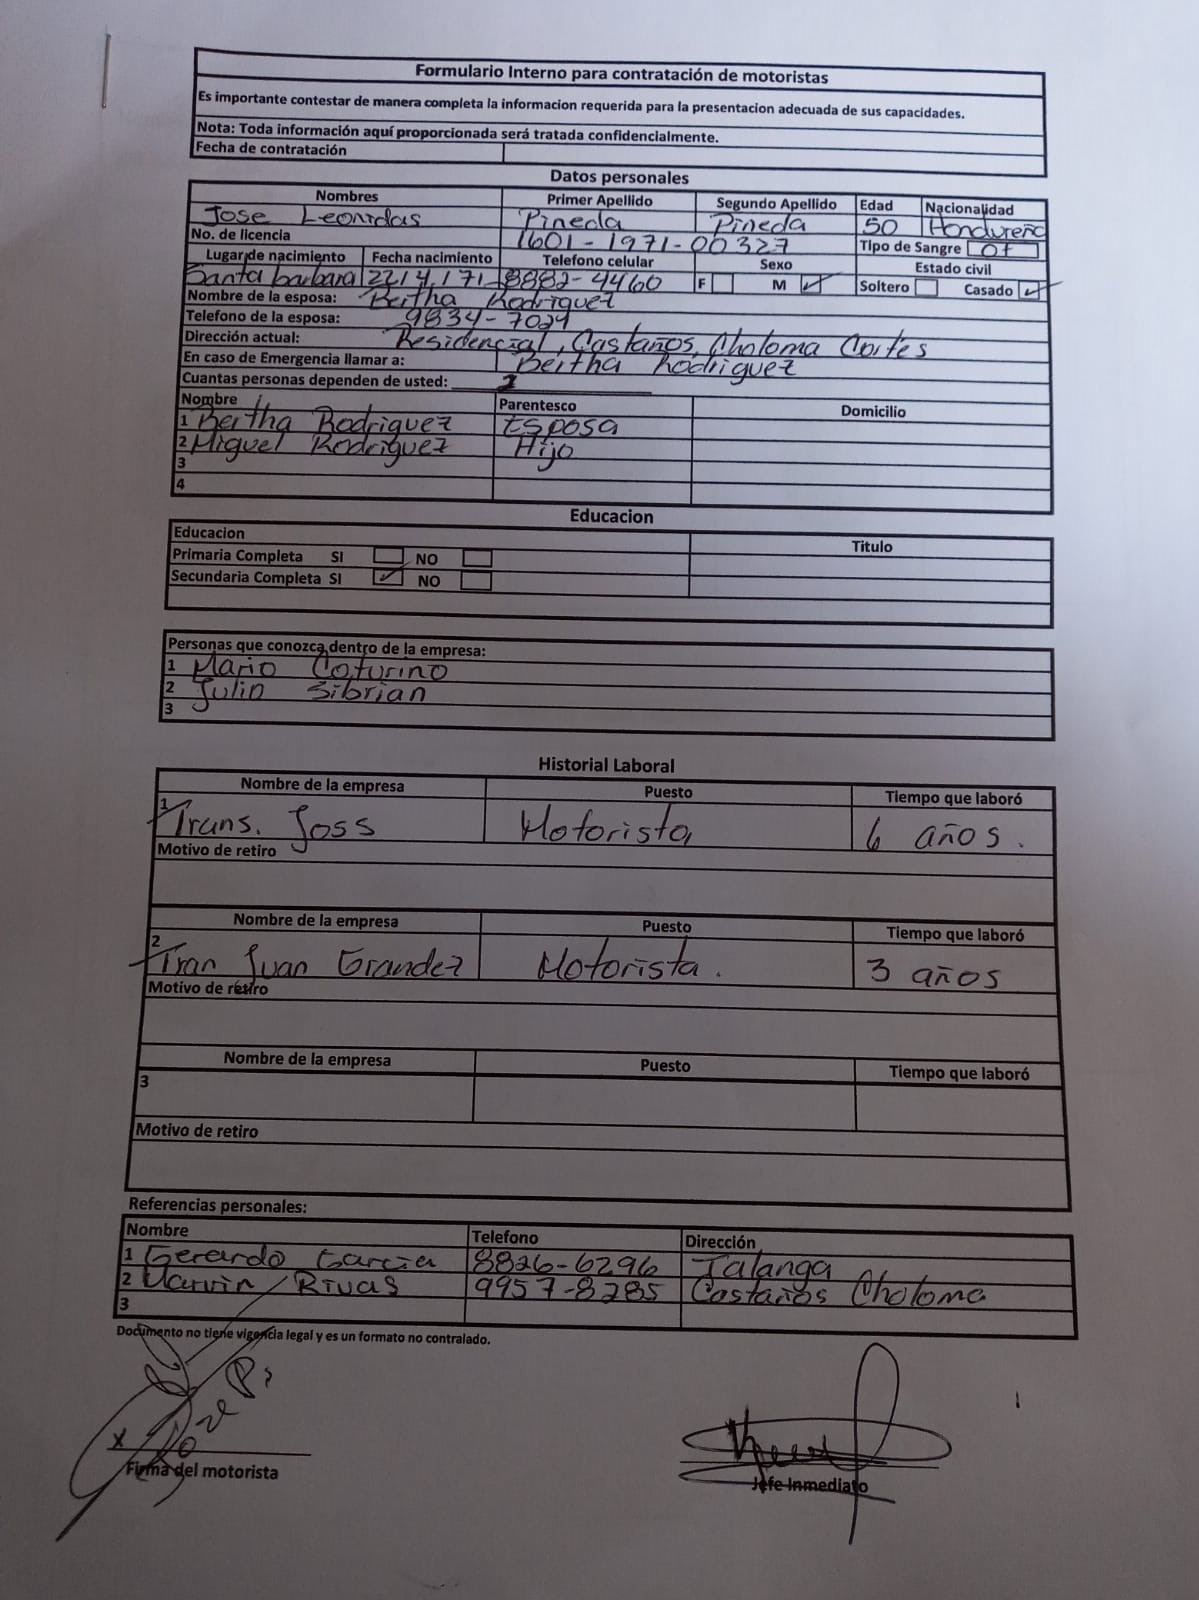 Formulario Interno para contratación de motoristas
Es importante contestar de manera completa la informacion requerida para la presentacion adecuada de sus capacidades.
Nota: Toda información aquí proporcionada será tratada confidencialmente.
Fecha de contratación
Datos personales
Nombres Primer Apellido Segundo Apellido Edad Nacionalidad
Jose Leonidas Pineda Pineda 50 Hondureño
No. de licencia 1601-1971-00327 Tipo de Sangre O+
Lugar de nacimiento Fecha nacimiento Telefono celular Sexo Estado civil
Santa barbara 22/4/71 8882-4460 F M Soltero Casado
Nombre de la esposa: Bertha Rodriguez
Telefono de la esposa: 9834-7029
Dirección actual: Residencial, Castaños, Choloma Cortes
En caso de Emergencia llamar a: Bertha Rodriguez
Cuantas personas dependen de usted:
Nombre Parentesco Domicilio
1 Bertha Rodriguez Esposa
2 Miguel Rodriguez Hijo
3
4
Educacion
Educacion Titulo
Primaria Completa SI NO
Secundaria Completa SI NO
Personas que conozca dentro de la empresa:
1 Mario Coturino
2 Julio Sibrian
3
Historial Laboral
Nombre de la empresa Puesto Tiempo que laboró
1 Trans. Joss Motorista 6 años.
Motivo de retiro
Nombre de la empresa Puesto Tiempo que laboró
2 Tran Juan Grandez Motorista. 3 años
Motivo de retiro
Nombre de la empresa Puesto Tiempo que laboró
3
Motivo de retiro
Referencias personales:
Nombre Telefono Dirección
1 Gerardo Garcia 8826-6296 Talanga
2 Marvin Rivas 9957-8285 Castaños Choloma
3
Documento no tiene vigencia legal y es un formato no contralado.
X Jose P.
Firma del motorista
Jefe Inmediato